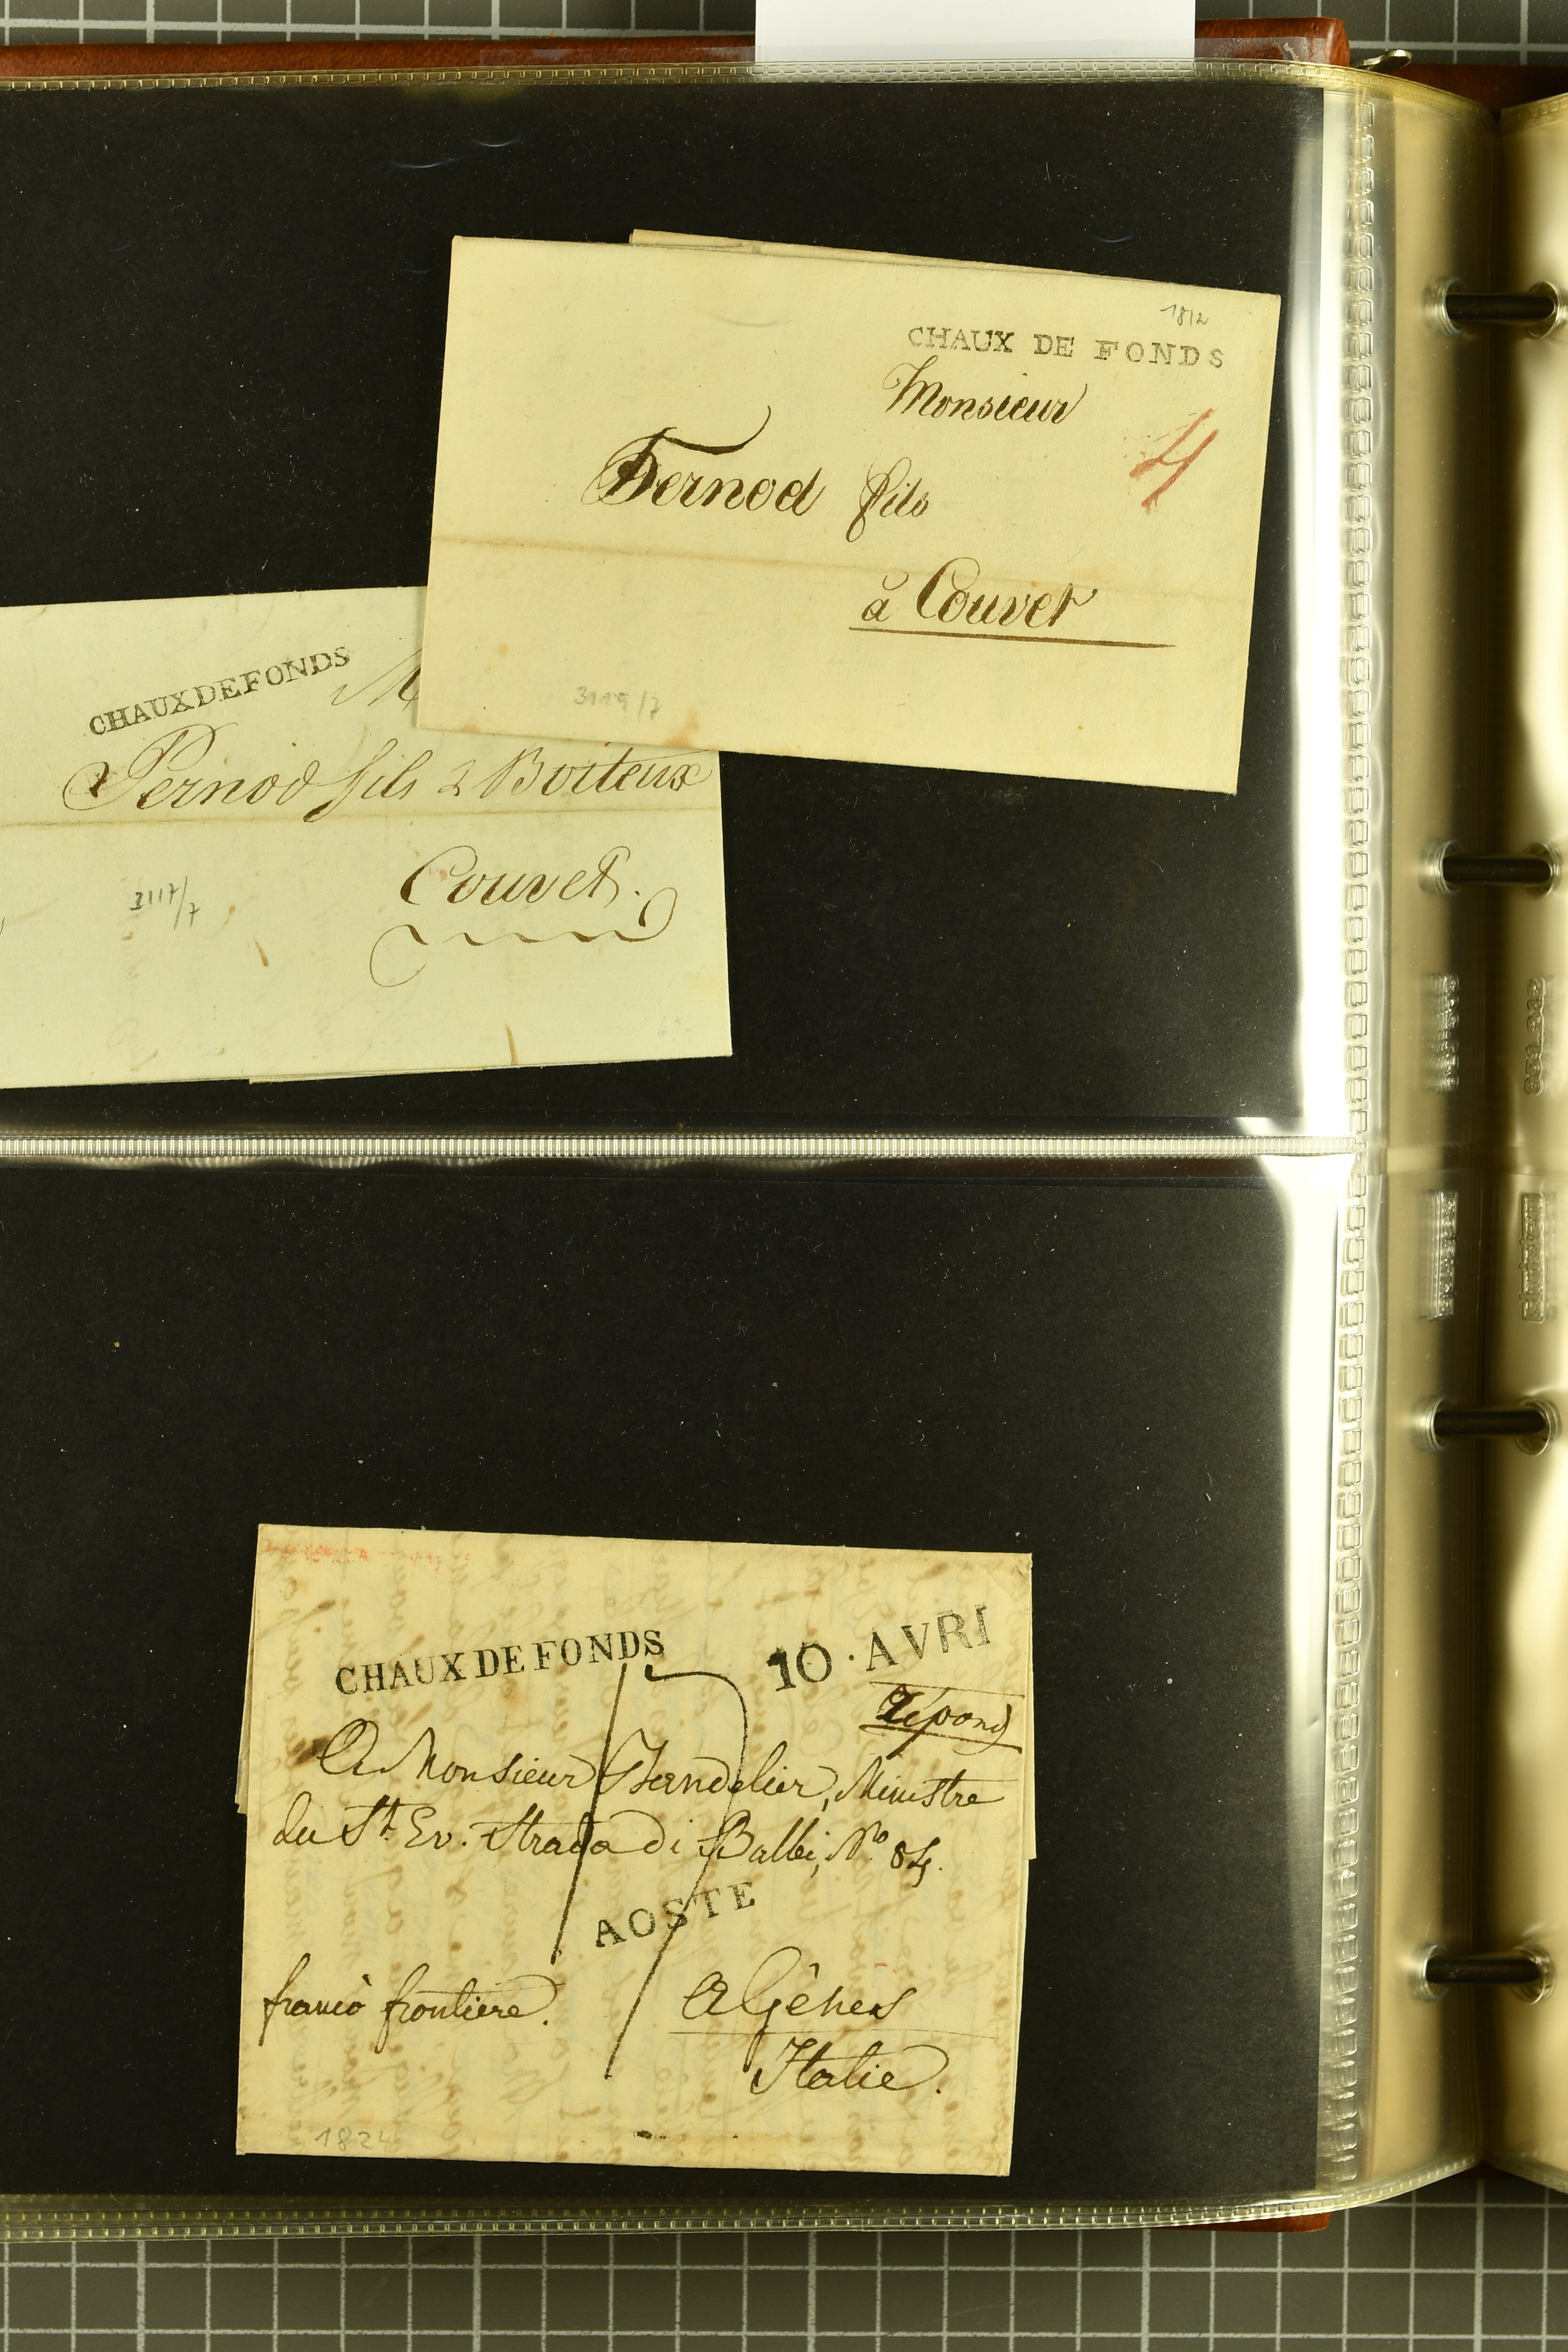 1812
CHAUX DE FONDS
Monsieur
4
Pernod fils
à Couvet
3119/7
CHAUX DE FONDS
M
Pernod fils & Boiteux
Couvet.
3117/7
CHAUX DE FONDS
10 · AVRI
répond
A Monsieur Bandelier, Ministre
du St. Ev. Strada di Balbi, No 84.
AOSTE
franco frontiere.
A Gênes
Italie.